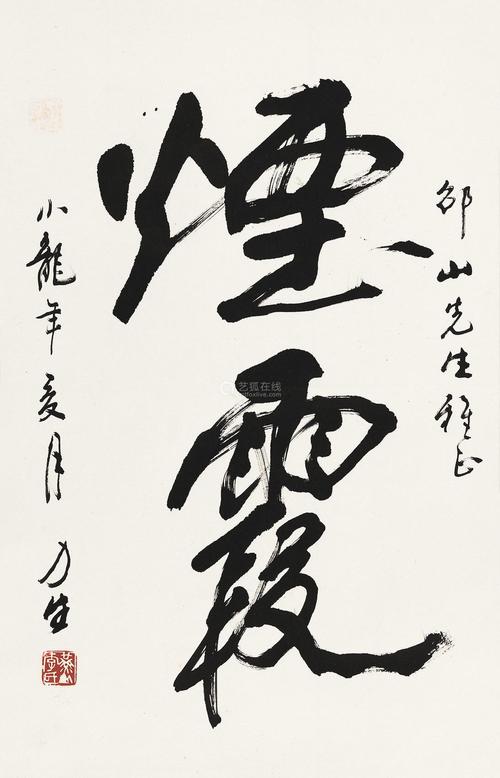 邵山先生雅正
煙霞
小龍年夏月 力生
艺狐在线
artfoxlive.com